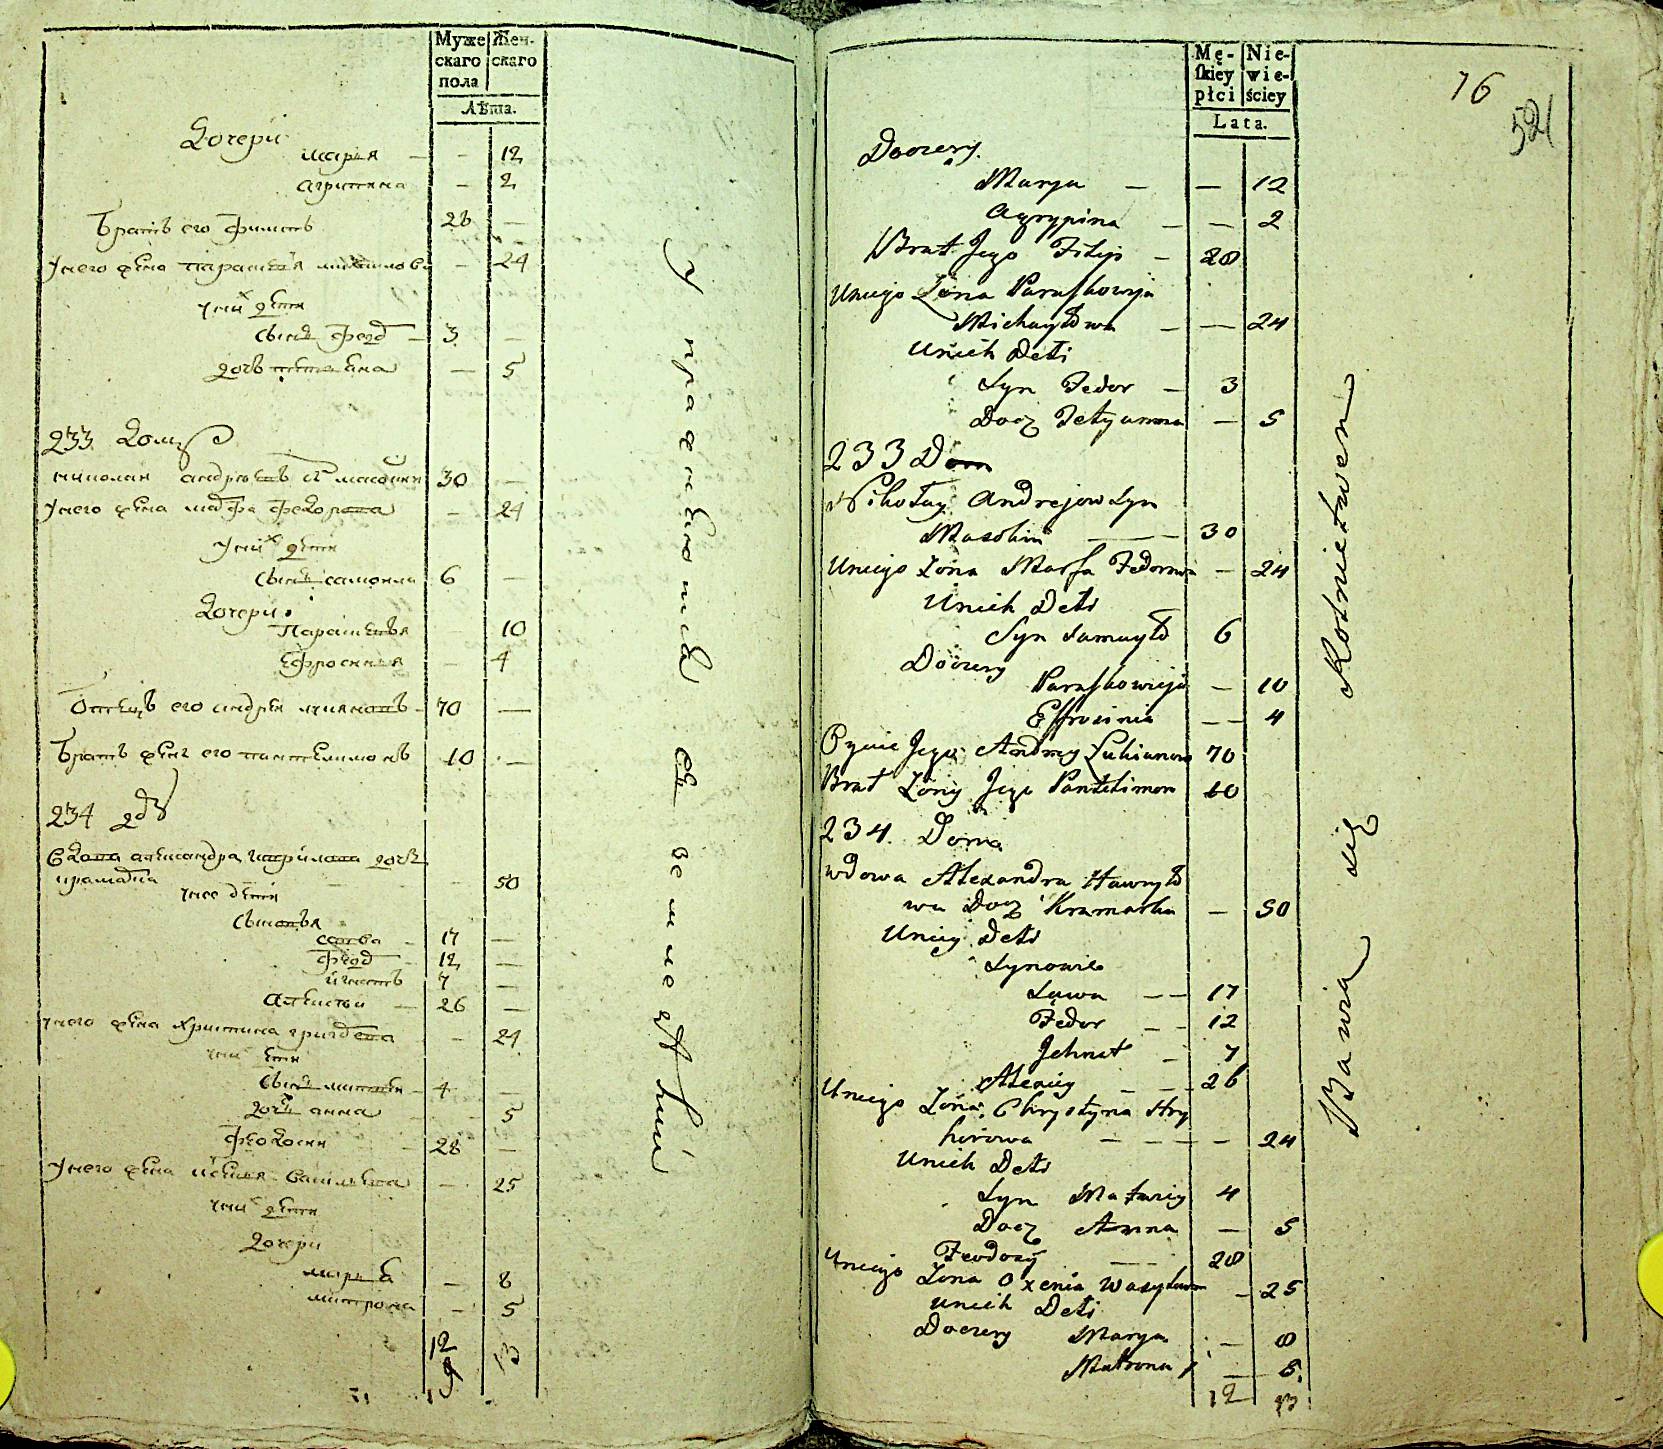 Муже скаго пола
Жен- скаго
Лѣта.
Дочери
марья — — 12
агрипина — 2
братъ его филипъ 28 —
унего жена парасковья михаилова — 24
унихъ дети
сынъ федоръ — 3 —
дочь татьяна — 5
233 Домъ
николай андреевъ сынъ масокин 30 —
унего жена марфа федорова — 24
унихъ дети
сынъ самоила 6 —
Дочери
Парасковья 10
Ефросинья — 4
Отецъ его андрей лукяновъ — 70 —
братъ жены его пантелимонъ 10 —
234 дворъ
вдова александра гаврилова дочь
крамарка — 50
унее дети
сыновья
савва — 17 —
федоръ — 12 —
игнатъ 7 —
Алексей — 26 —
унего жена христина григорьева — 24
унихъ дети
сынъ матвей — 4 —
дочь анна — 5
Феодосий 28 —
унего жена ксенья васильева — 25
унихъ дети
дочери
марья — 8
матрона — 5
12 13
упражняются въ земледелии
Mę- skiey płci
Nie- wie- ściey
Lata.
76
521
Doczery
Marya — — 12
Agrypina — — 2
Brat Jego Filip — 28
Uniego Żona Paraskowija
Michayłowa — — 24
Unich Deti
Syn Fedor — 3
Docz Tetyanna — 5
233 Dom
Nikołay Andrejow Syn
Masokin — 30
Uniego Żona Marfa Fedorowa — 24
Unich Deti
Syn Samuyło 6
Doczery
Paraskowieja — 10
Effrosinia — — 4
Oyciec Jego Andrey Łukianow 70
Brat Żony Jego Pantelimon 10
234 Doma
wdowa Alexandra Hawryło
wa Docz Kramarka — 50
Uniey Deti
Synowie
Sawa — — 17
Fedor — — 12
Jehnat — 7
Alexiey — — 26
Uniego Żona Chrystyna Hry
horowa — — — 24
Unich Deti
Syn Matwiey 4
Docz Anna — 5
Feodosy — 28
Uniego Żona Oxenia Wasylowa — 25
Unich Deti
Doczery Marya — 8
Matrona — 5
12 13
Bawią się Rolnictwem